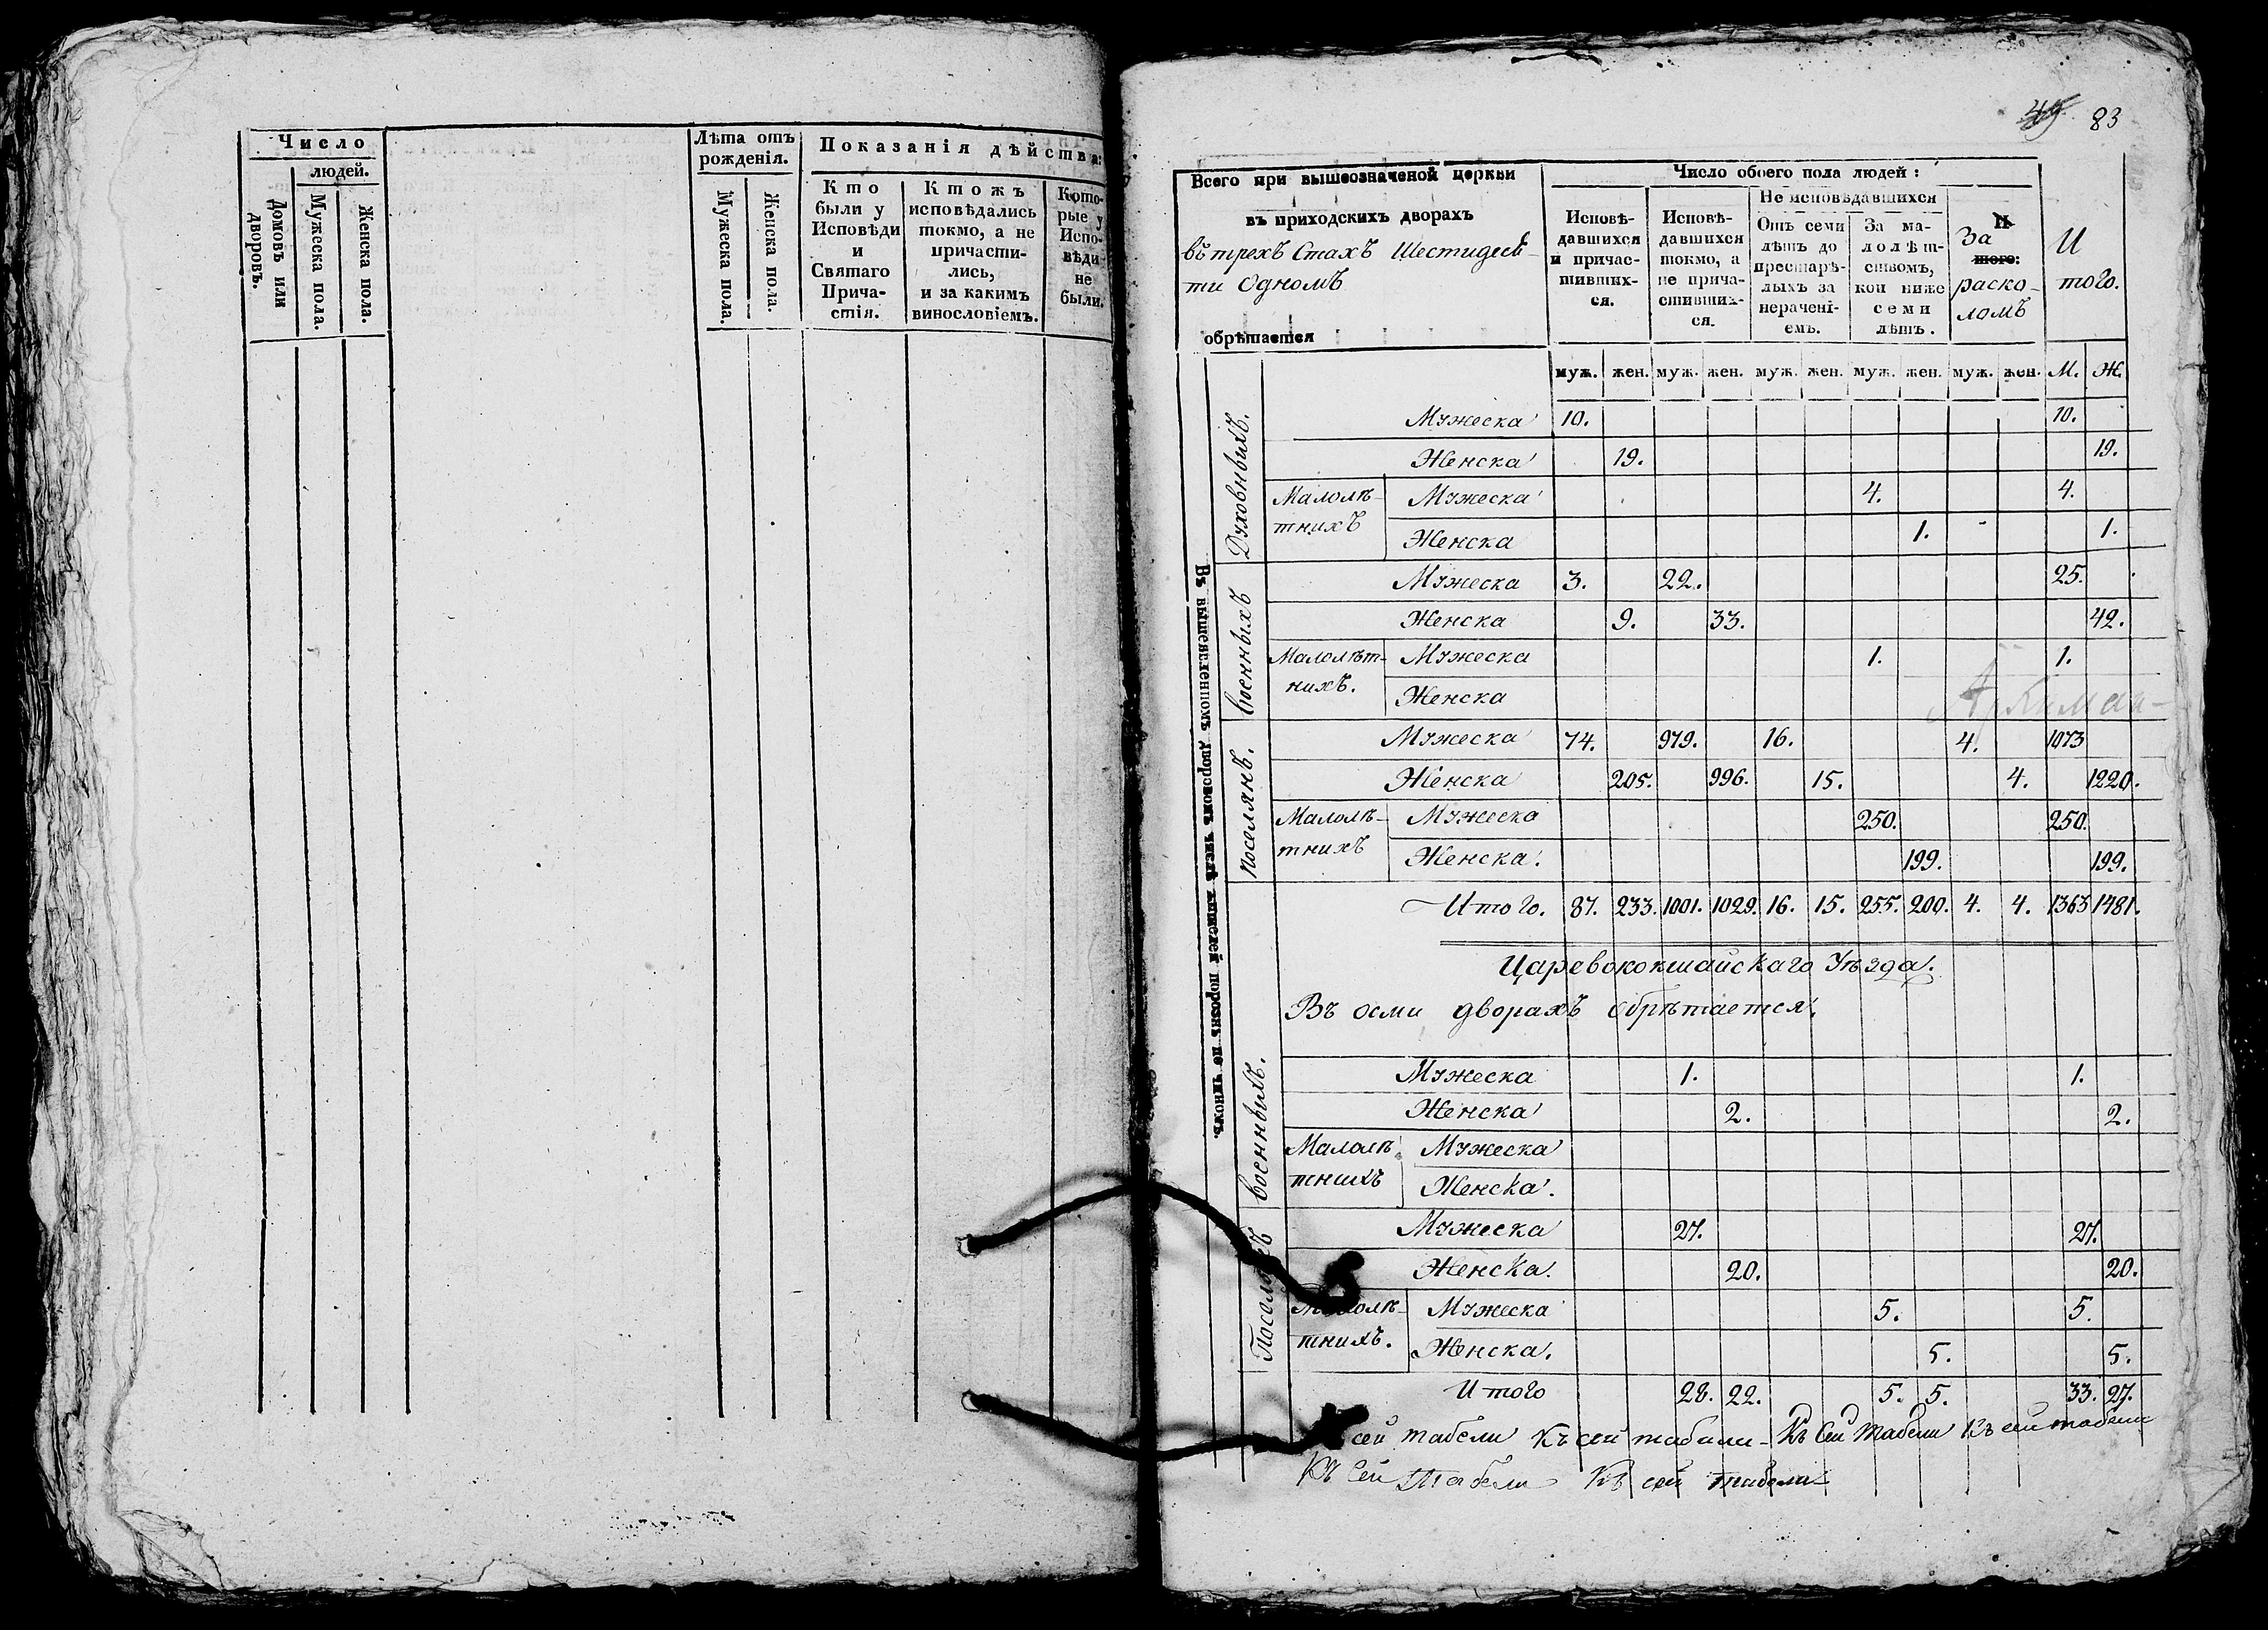 Число
людей.
Домовъ или дворовъ.
Мужеска пола.
Женска пола.
Лѣта отъ рожденія.
Мужеска пола.
Женска пола.
Показанія дѣйства:
Кто были у Исповѣди и Святаго Прича-стія.
Ктожъ исповѣдались токмо, а не причасти-лись, и за какимъ винословіемъ.
Кото-рые у Испо-вѣди не были.
83
Всего при вышеозначеной церкви
въ приходскихъ дворахъ
въ трехъ Стахъ Шестидеся-
ти Одномъ
обрѣтается
Число обоего пола людей:
Исповѣ-давшихся и причас-тивших-ся.
Исповѣ-давшихся токмо, а не прича-стивших-ся.
Не исповѣдавшихся
Отъ семи лѣтъ до престарѣ-лыхъ за нерачені-емъ.
За ма-лолѣт-ствомъ, кои ниже семи лѣтъ.
За раско-ломъ
И того.
муж. жен. муж. жен. муж. жен. муж. жен. муж. жен. М. Ж.
Въ вышеявленномъ дворовомъ числѣ жителей порознь по чиномъ.
Духовныхъ.
Мужеска 10. 10.
Женска 19. 19.
Малолѣ-тнихъ
Мужеска 4. 4.
Женска 1. 1.
Военныхъ
Мужеска 3. 22. 25.
Женска 9. 33. 42.
Малолѣт-нихъ.
Мужеска 1. 1.
Женска
Архиман-
Поселянъ.
Мужеска 74. 979. 16. 4. 1073
Женска 205. 996. 15. 4. 1220.
Малолѣ-тнихъ
Мужеска 250. 250.
Женска. 199. 199.
Итого. 87. 233. 1001. 1029. 16. 15. 255. 200. 4. 4. 1363 1481.
Царевококшайскаго Уѣзда.
Въ осми дворахъ обрѣтается.
военныхъ.
Мужеска 1. 1.
Женска 2. 2.
Малолѣ тнихъ
Мужеска
Женска.
Мужеска 27. 27.
Женска. 20. 20.
тнихъ.
Мужеска 5. 5.
Женска. 5. 5.
Итого 28. 22. 5. 5. 33. 27.
сей табели Къ сей табели- Къ сей табели Къ сей табели
Къ сей табели Къ сей табели